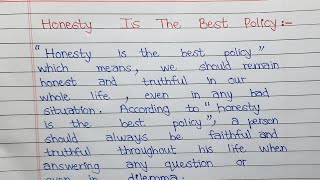 Honesty Is The Best Policy:-
"Honesty is the best policy"
which means, we should remain
honest and truthful in our
whole life, even in any bad
situation. According to "honesty
is the best policy", a person
should always be faithful and
truthful throughout his life when
answering any question or
even in dilemma.